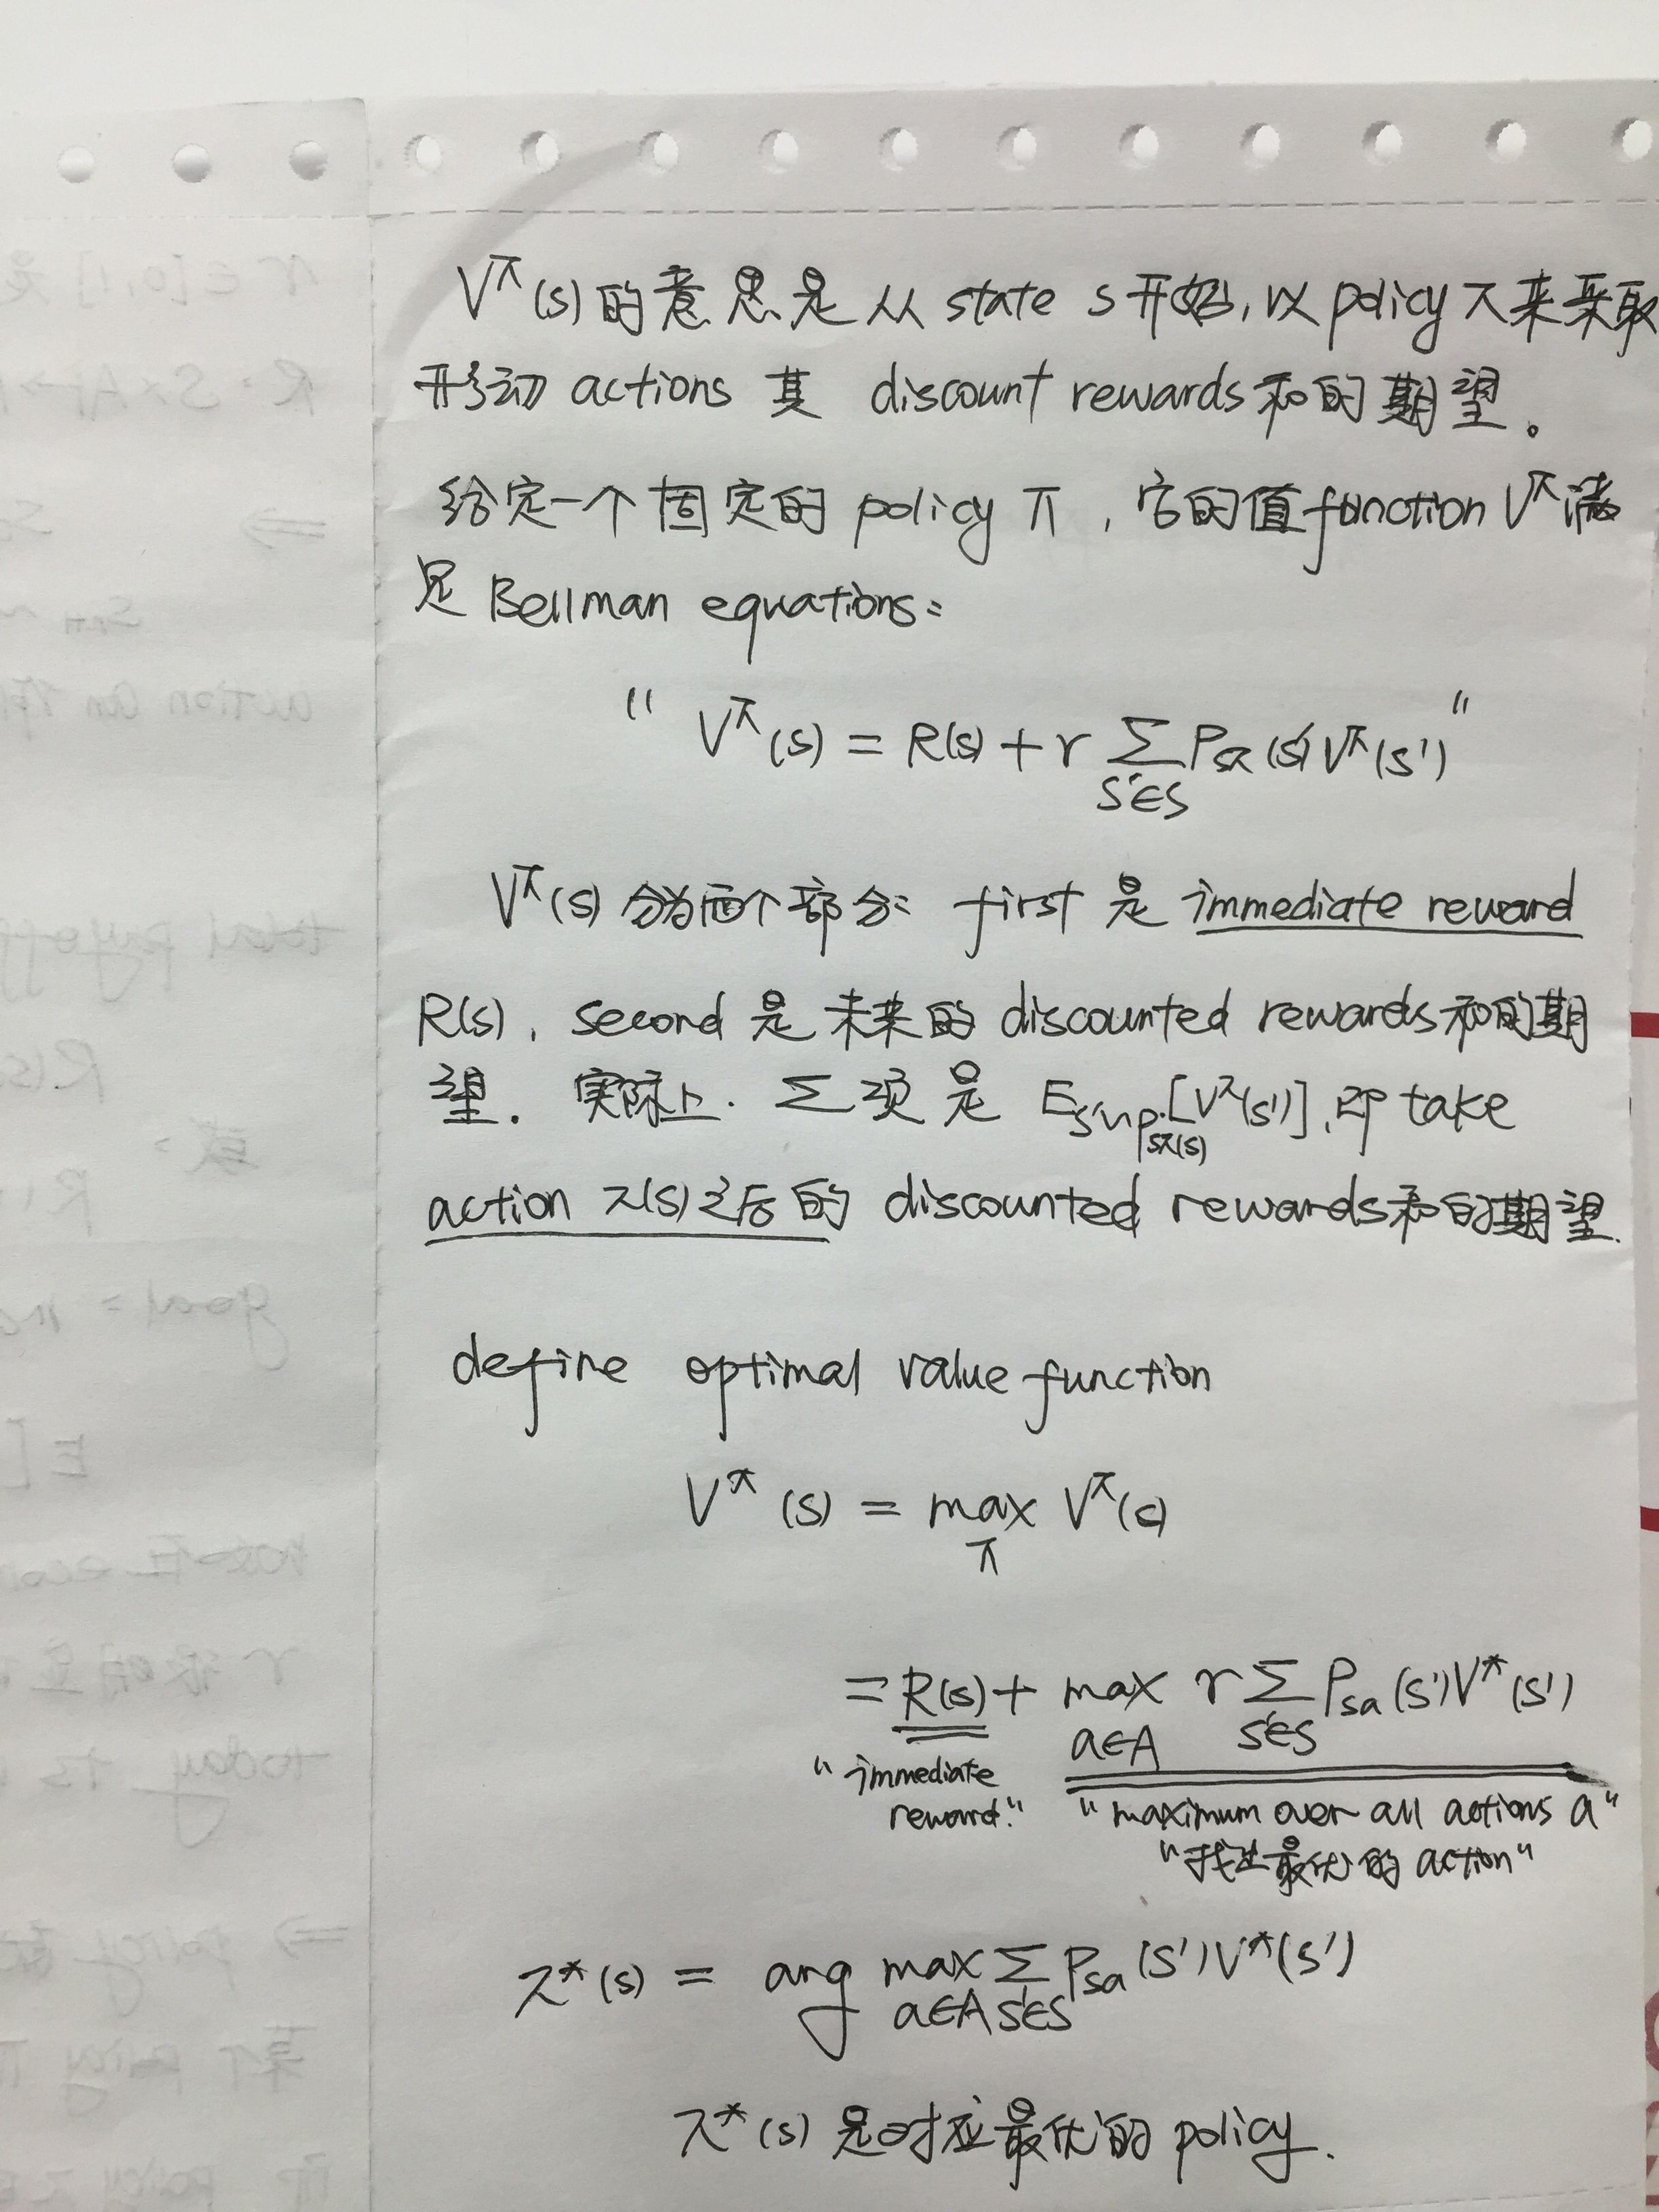 V^π(s) 的意思是从 state s 开始, 以 policy π 来采取
移动 actions 其 discount rewards 和的期望。
给定一个固定的 policy π, 它的值 function V^π 满
足 Bellman equations:
" V^π(s) = R(s) + r Σ_{s'∈S} P_{sπ}(s') V^π(s') "
V^π(s) 分为两个部分: first 是 immediate reward
R(s), second 是未来的 discounted rewards 和的期
望. 实际上. Σ 项是 E_{s'~P_{sπ(s)}}[V^π(s')], 即 take
action π(s) 之后的 discounted rewards 和的期望.
define optimal value function
V^*(s) = max_π V^π(s)
= R(s) + max_{a∈A} r Σ_{s'∈S} P_{sa}(s') V^*(s')
"immediate
reward."
"maximum over all actions a"
"找出最优的 action"
π*(s) = arg max_{a∈A} Σ_{s'∈S} P_{sa}(s') V^*(s')
π*(s) 是对应最优的 policy.